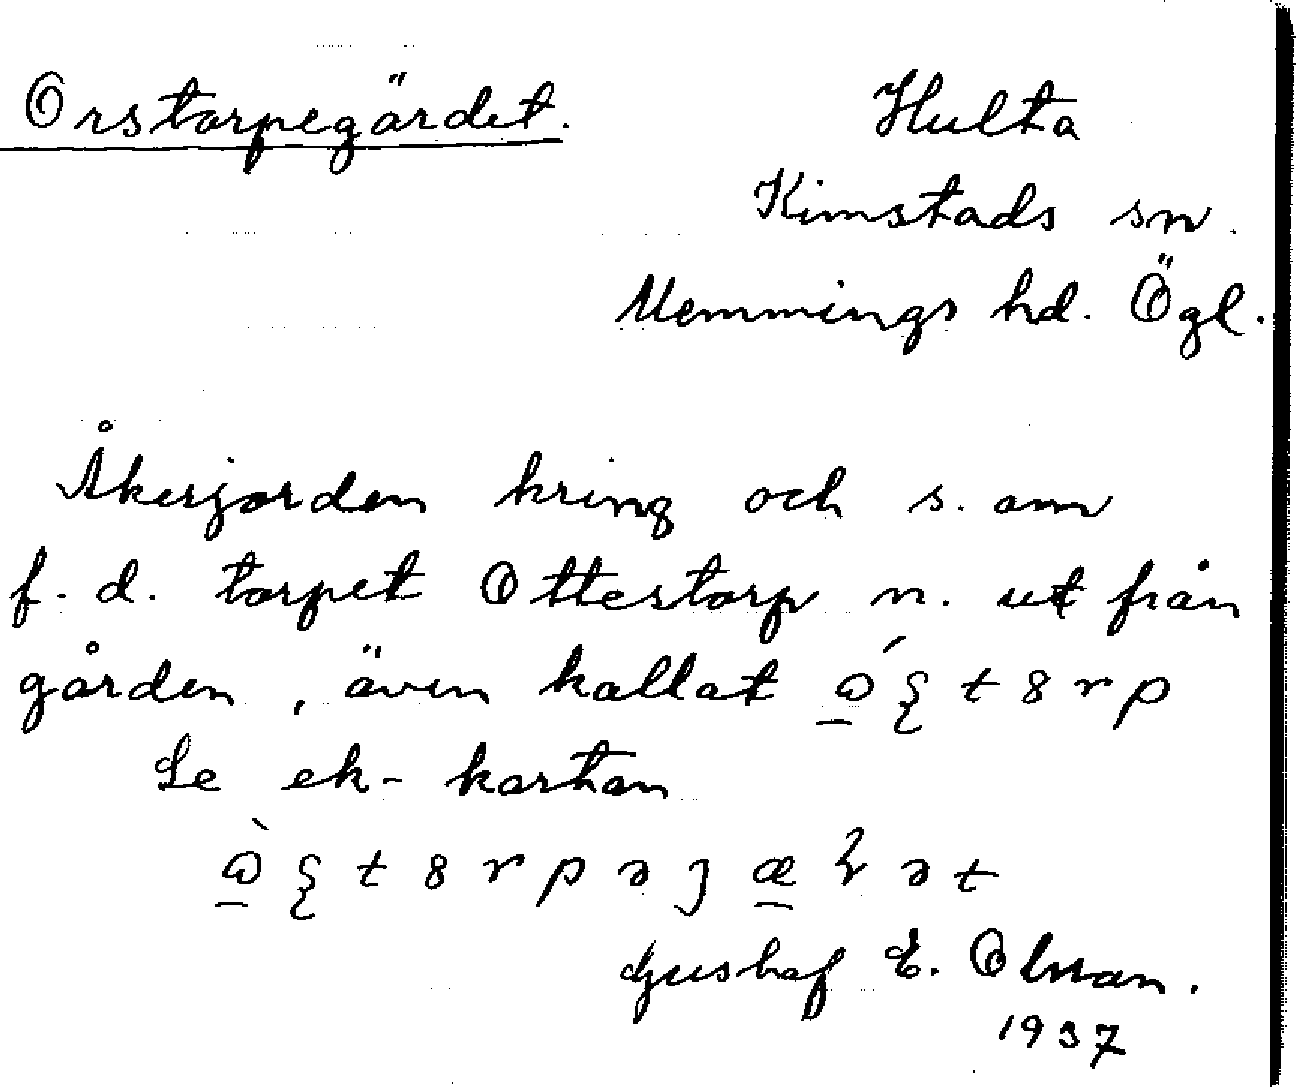 Orstorpegärdet.
Hulta
Kimstads sn.
Memmings hd. Ögl.
Åkerjorden kring och s. om
f. d. torpet Ottestorp n. ut från
gården, även kallat
Se ek-kartan
Gustaf E. Olsson.
1937